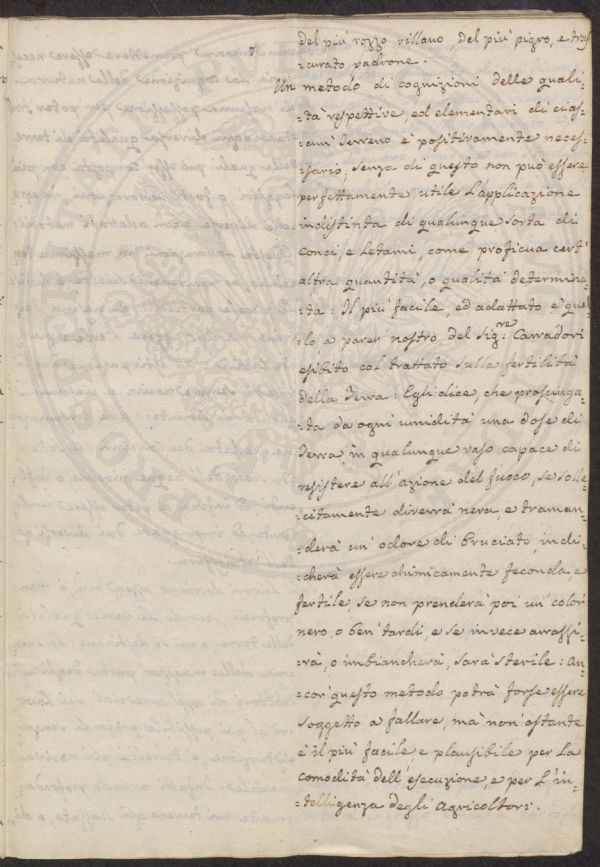 del più rozzo villano, del più pigro, e tras-
-curato padrone.
Un metodo di cognizioni delle quali-
-tà respettive, ed elementari di cias-
-cun Terreno è positivamente neces-
-sario; senza di questo non può essere
perfettamente utile l'applicazione
indistinta di qualunque sorta di
Conci, e Letami, come proficua cert'
altra quantità, o qualità determina-
-ta: Il più facile, ed adattato è quel-
-lo a parer nostro, del Sig.re Carradori
esibito col trattato sulla fertilità
della Terra: Egli dice, che prosciuga-
-ta da ogni umidità una dose di
Terra, in qualunque vaso capace di
resistere all'azione del fuoco, se solle-
-citamente diverrà nera, e traman-
-derà un'odore di bruciato, indi-
-cherà essere chimicamente feconda, e
fertile, se non prenderà poi un color
nero, o ben tardi, e se invece arrossi-
-rà, o imbiancherà, sarà sterile: An-
-cor questo metodo potrà forse essere
soggetto a fallare, mà non'ostante
è il più facile, e plausibile per la
comodità dell'esecuzione, e per l'in-
-telligenza degli Agricoltori.